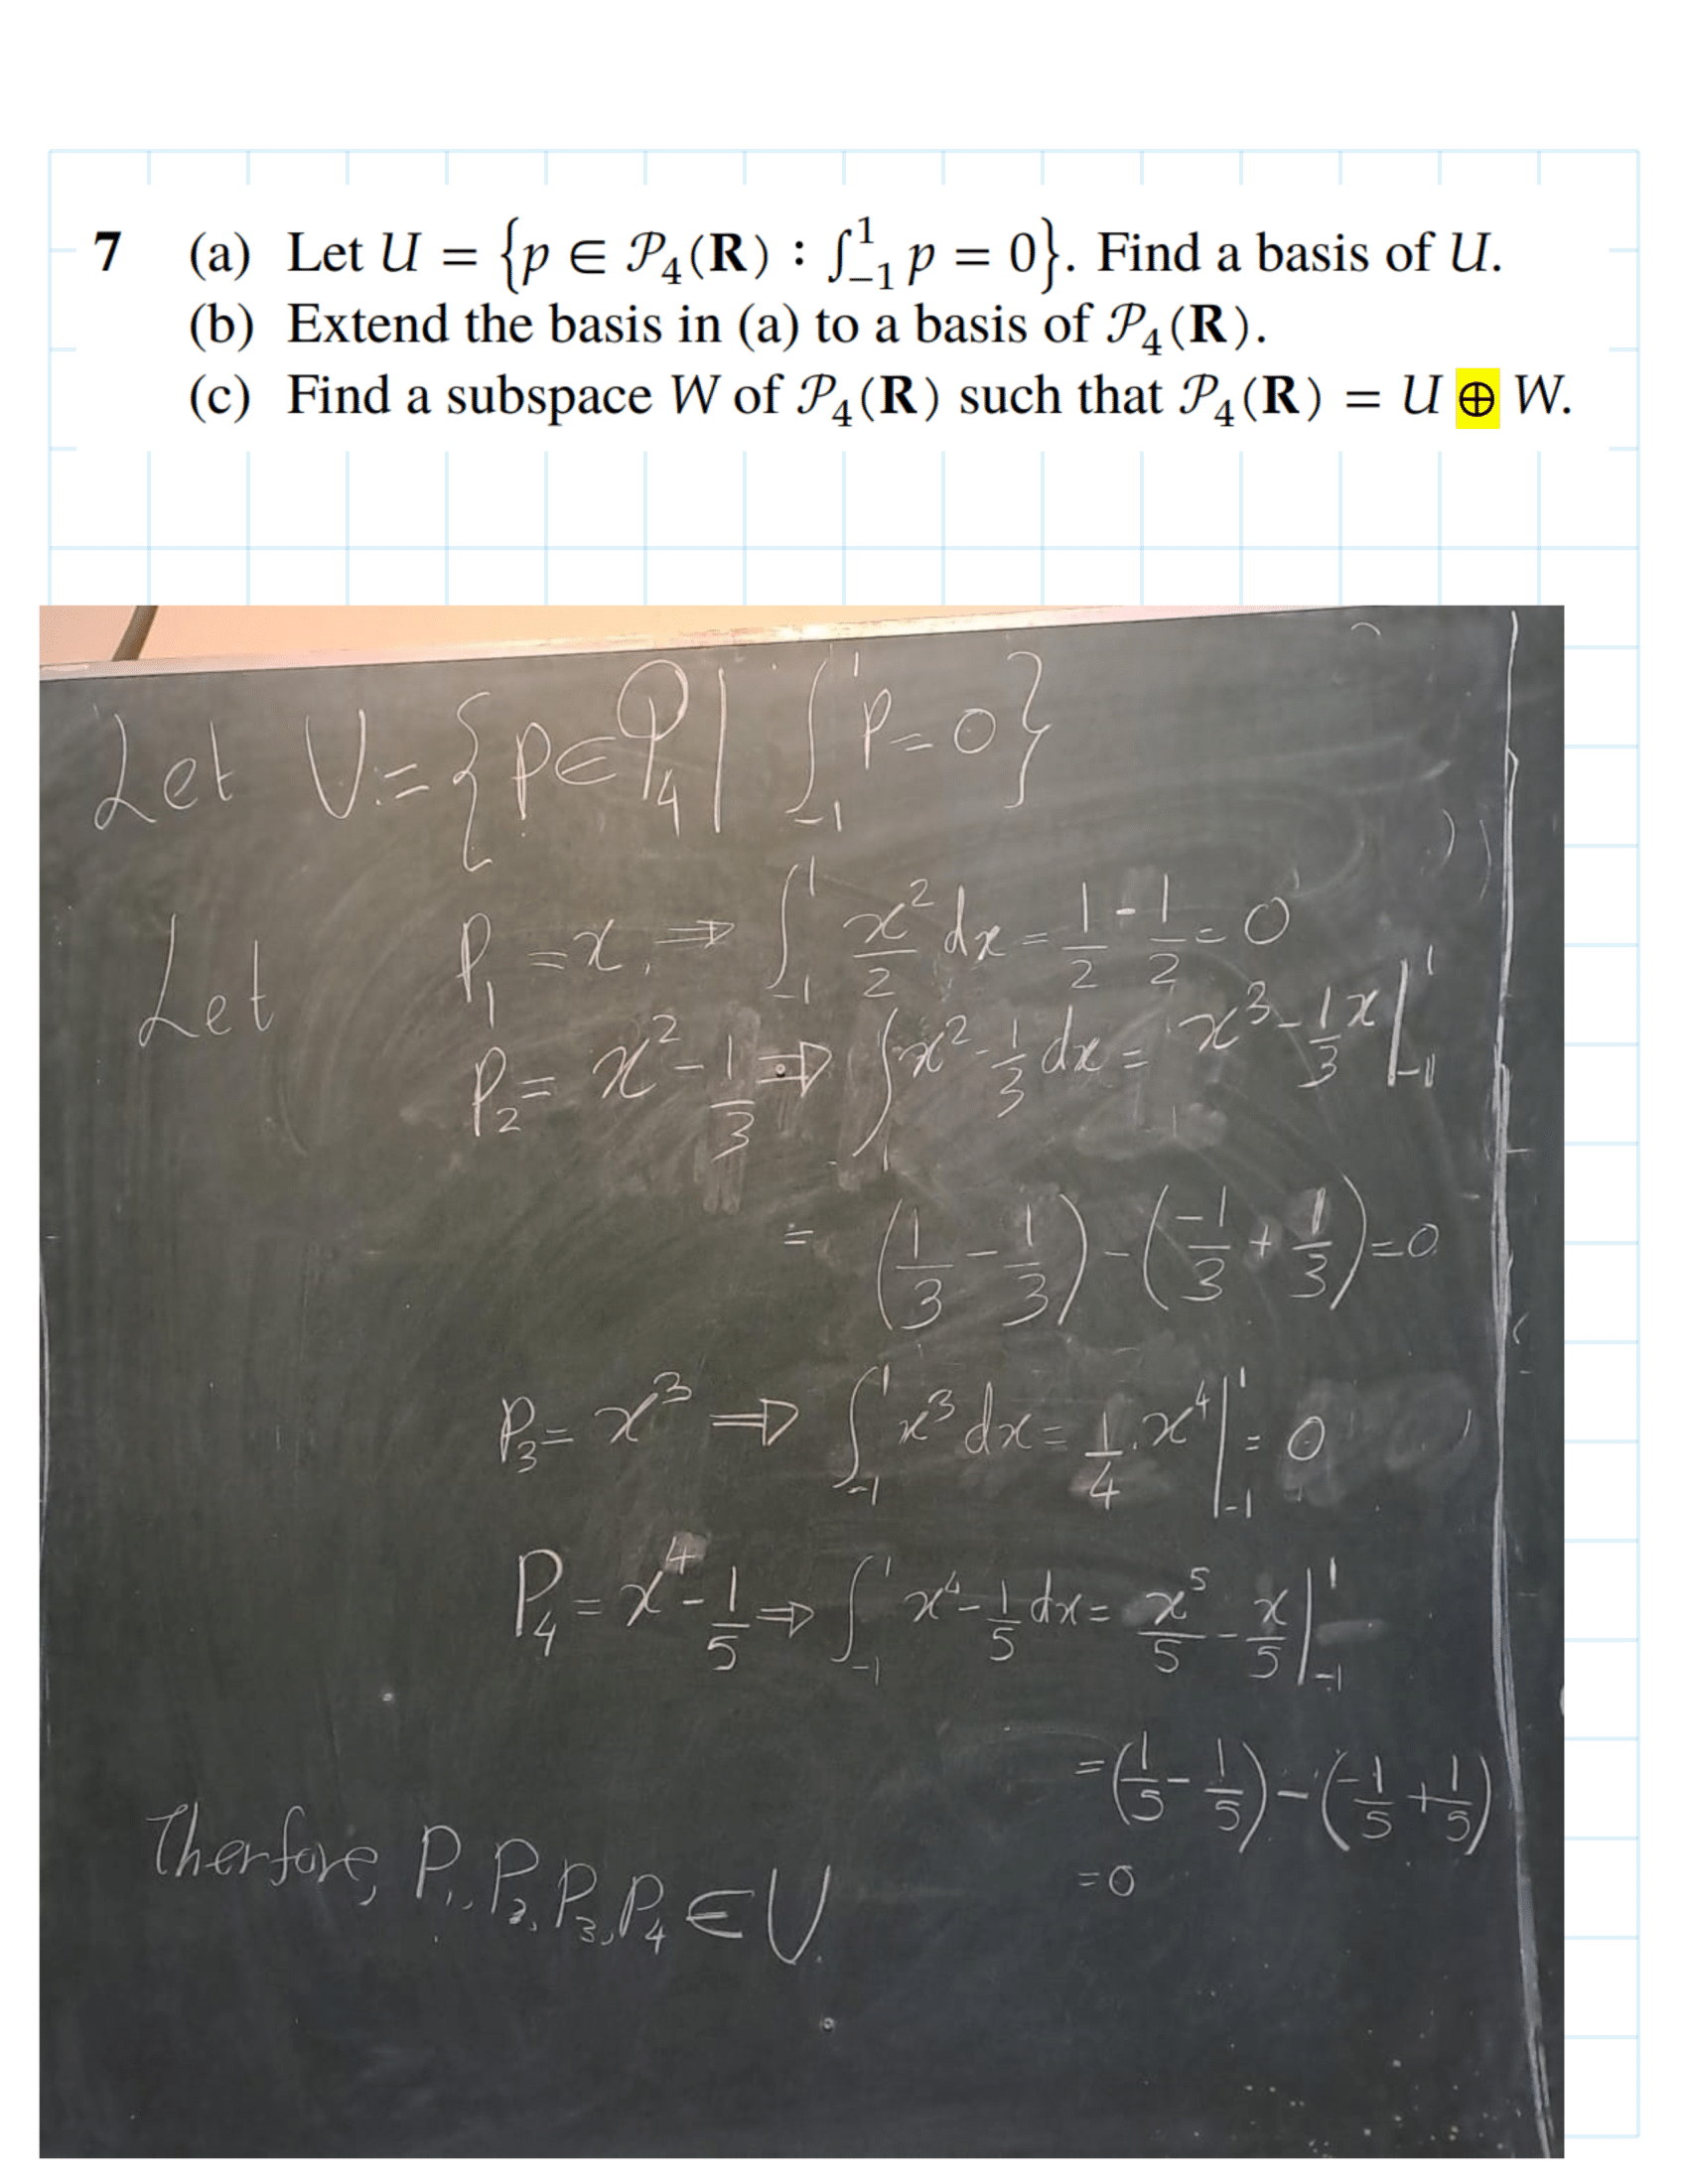 7 (a) Let U = {p ∈ 𝒫₄(R) : ∫₋₁¹ p = 0}. Find a basis of U.
(b) Extend the basis in (a) to a basis of 𝒫₄(R).
(c) Find a subspace W of 𝒫₄(R) such that 𝒫₄(R) = U ⊕ W.
Let U := {p ∈ P₄ | ∫₋₁¹ p = 0}
Let P₁ = x, ⇒ ∫₋₁¹ x²/2 dx = 1/2 - 1/2 = 0
P₂ = x² - 1/3 ⇒ ∫ x² - 1/3 dx = x³ - 1/3 x |₋₁¹
= (1/3 - 1/3) - (-1/3 + 1/3) = 0
P₃ = x³ ⇒ ∫₋₁¹ x³ dx = 1/4 . x⁴ |₋₁¹ = 0
P₄ = x⁴ - 1/5 ⇒ ∫₋₁¹ x⁴ - 1/5 dx = x⁵/5 - x/5 |₋₁¹
= (1/5 - 1/5) - (-1/5 + 1/5)
= 0
Therfore, P₁, P₂, P₃, P₄ ∈ U.